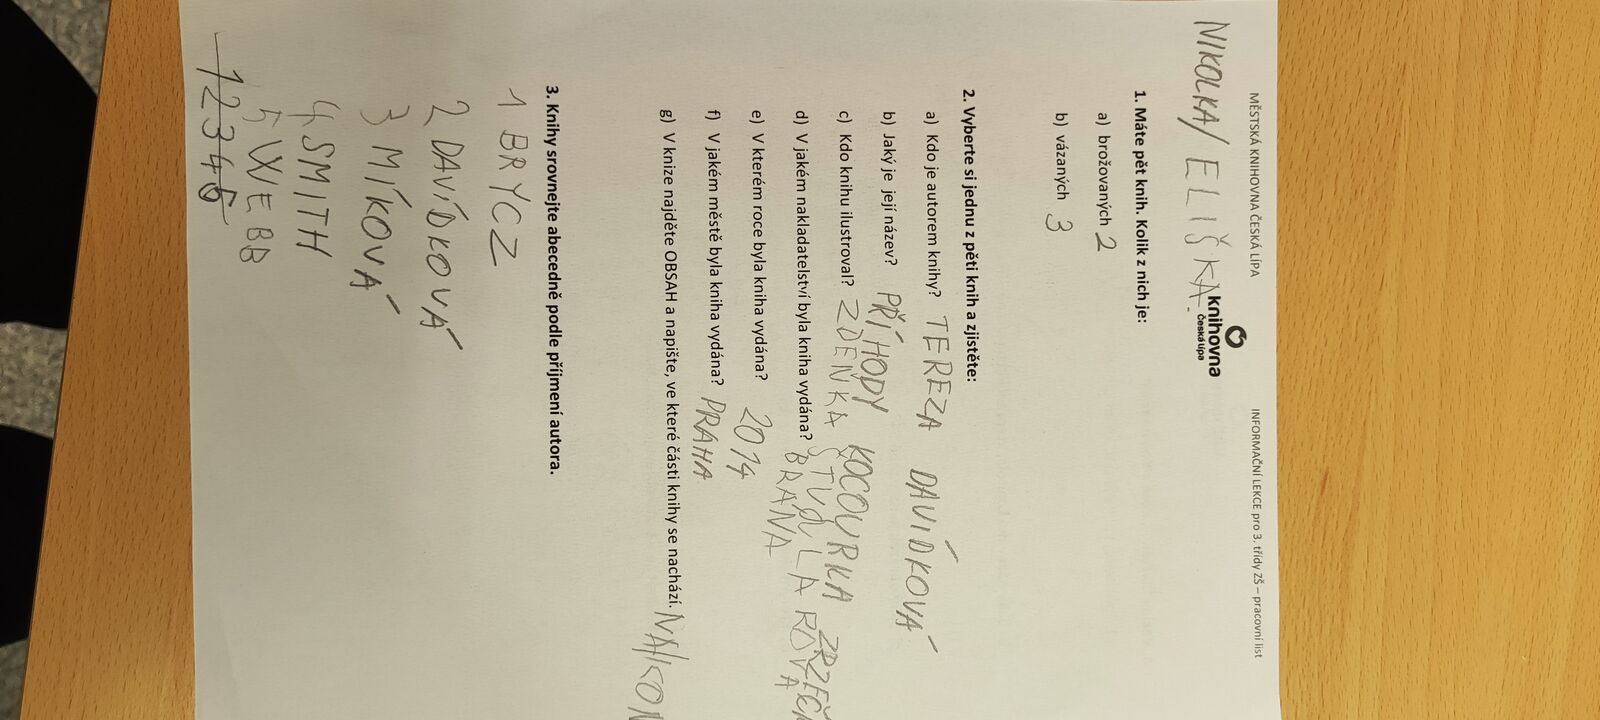 MĚSTSKÁ KNIHOVNA ČESKÁ LÍPA
INFORMAČNÍ LEKCE pro 3. třídy ZŠ – pracovní list
knihovna
Česká Lípa
NIKOLKA/ ELIŠKA
1. Máte pět knih. Kolik z nich je:
a) brožovaných 2
b) vázaných 3
2. Vyberte si jednu z pěti knih a zjistěte:
a) Kdo je autorem knihy? TEREZA DAVÍDKOVÁ
b) Jaký je její název? PŘÍHODY KOCOURKA
c) Kdo knihu ilustroval? ZDEŇKA ŠTUDLAROVÁ
d) V jakém nakladatelství byla kniha vydána? BRÁNA
e) V kterém roce byla kniha vydána? 2014
f) V jakém městě byla kniha vydána? PRAHA
g) V knize najděte OBSAH a napište, ve které části knihy se nachází. NA
3. Knihy srovnejte abecedně podle příjmení autora.
1 BRYCZ
2 DAVÍDKOVÁ
3 MÍKOVÁ
4 SMITH
5 WEBB
12345